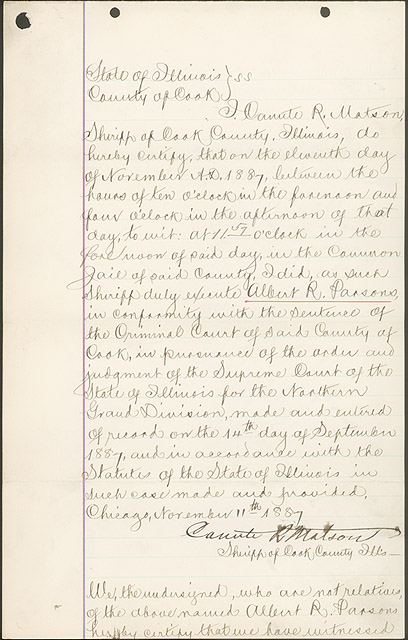 State of Illinois } ss
County of Cook }
I, Canute R. Matson,
Sheriff of Cook County, Illinois, do
hereby certify, that on the eleventh day
of November A.D. 1887, between the
hours of ten o'clock in the forenoon and
four o'clock in the afternoon of that
day, to wit: at 11 57 o'clock in the
fore noon of said day, in the Common
Jail of said County, I did, as such
Sheriff duly execute Albert R. Parsons,
in conformity with the Sentence of
the Criminal Court of said County of
Cook, in pursuance of the order and
judgment of the Supreme Court of the
State of Illinois for the Northern
Grand Division, made and entered
of record on the 14th day of September
1887, and in accordance with the
Statutes of the State of Illinois in
such case made and provided.
Chicago, November 11th 1887
Canute R Matson
Sheriff of Cook County Ills —
We, the undersigned, who are not relatives
of the above named Albert R. Parsons
hereby certify that we have witnessed